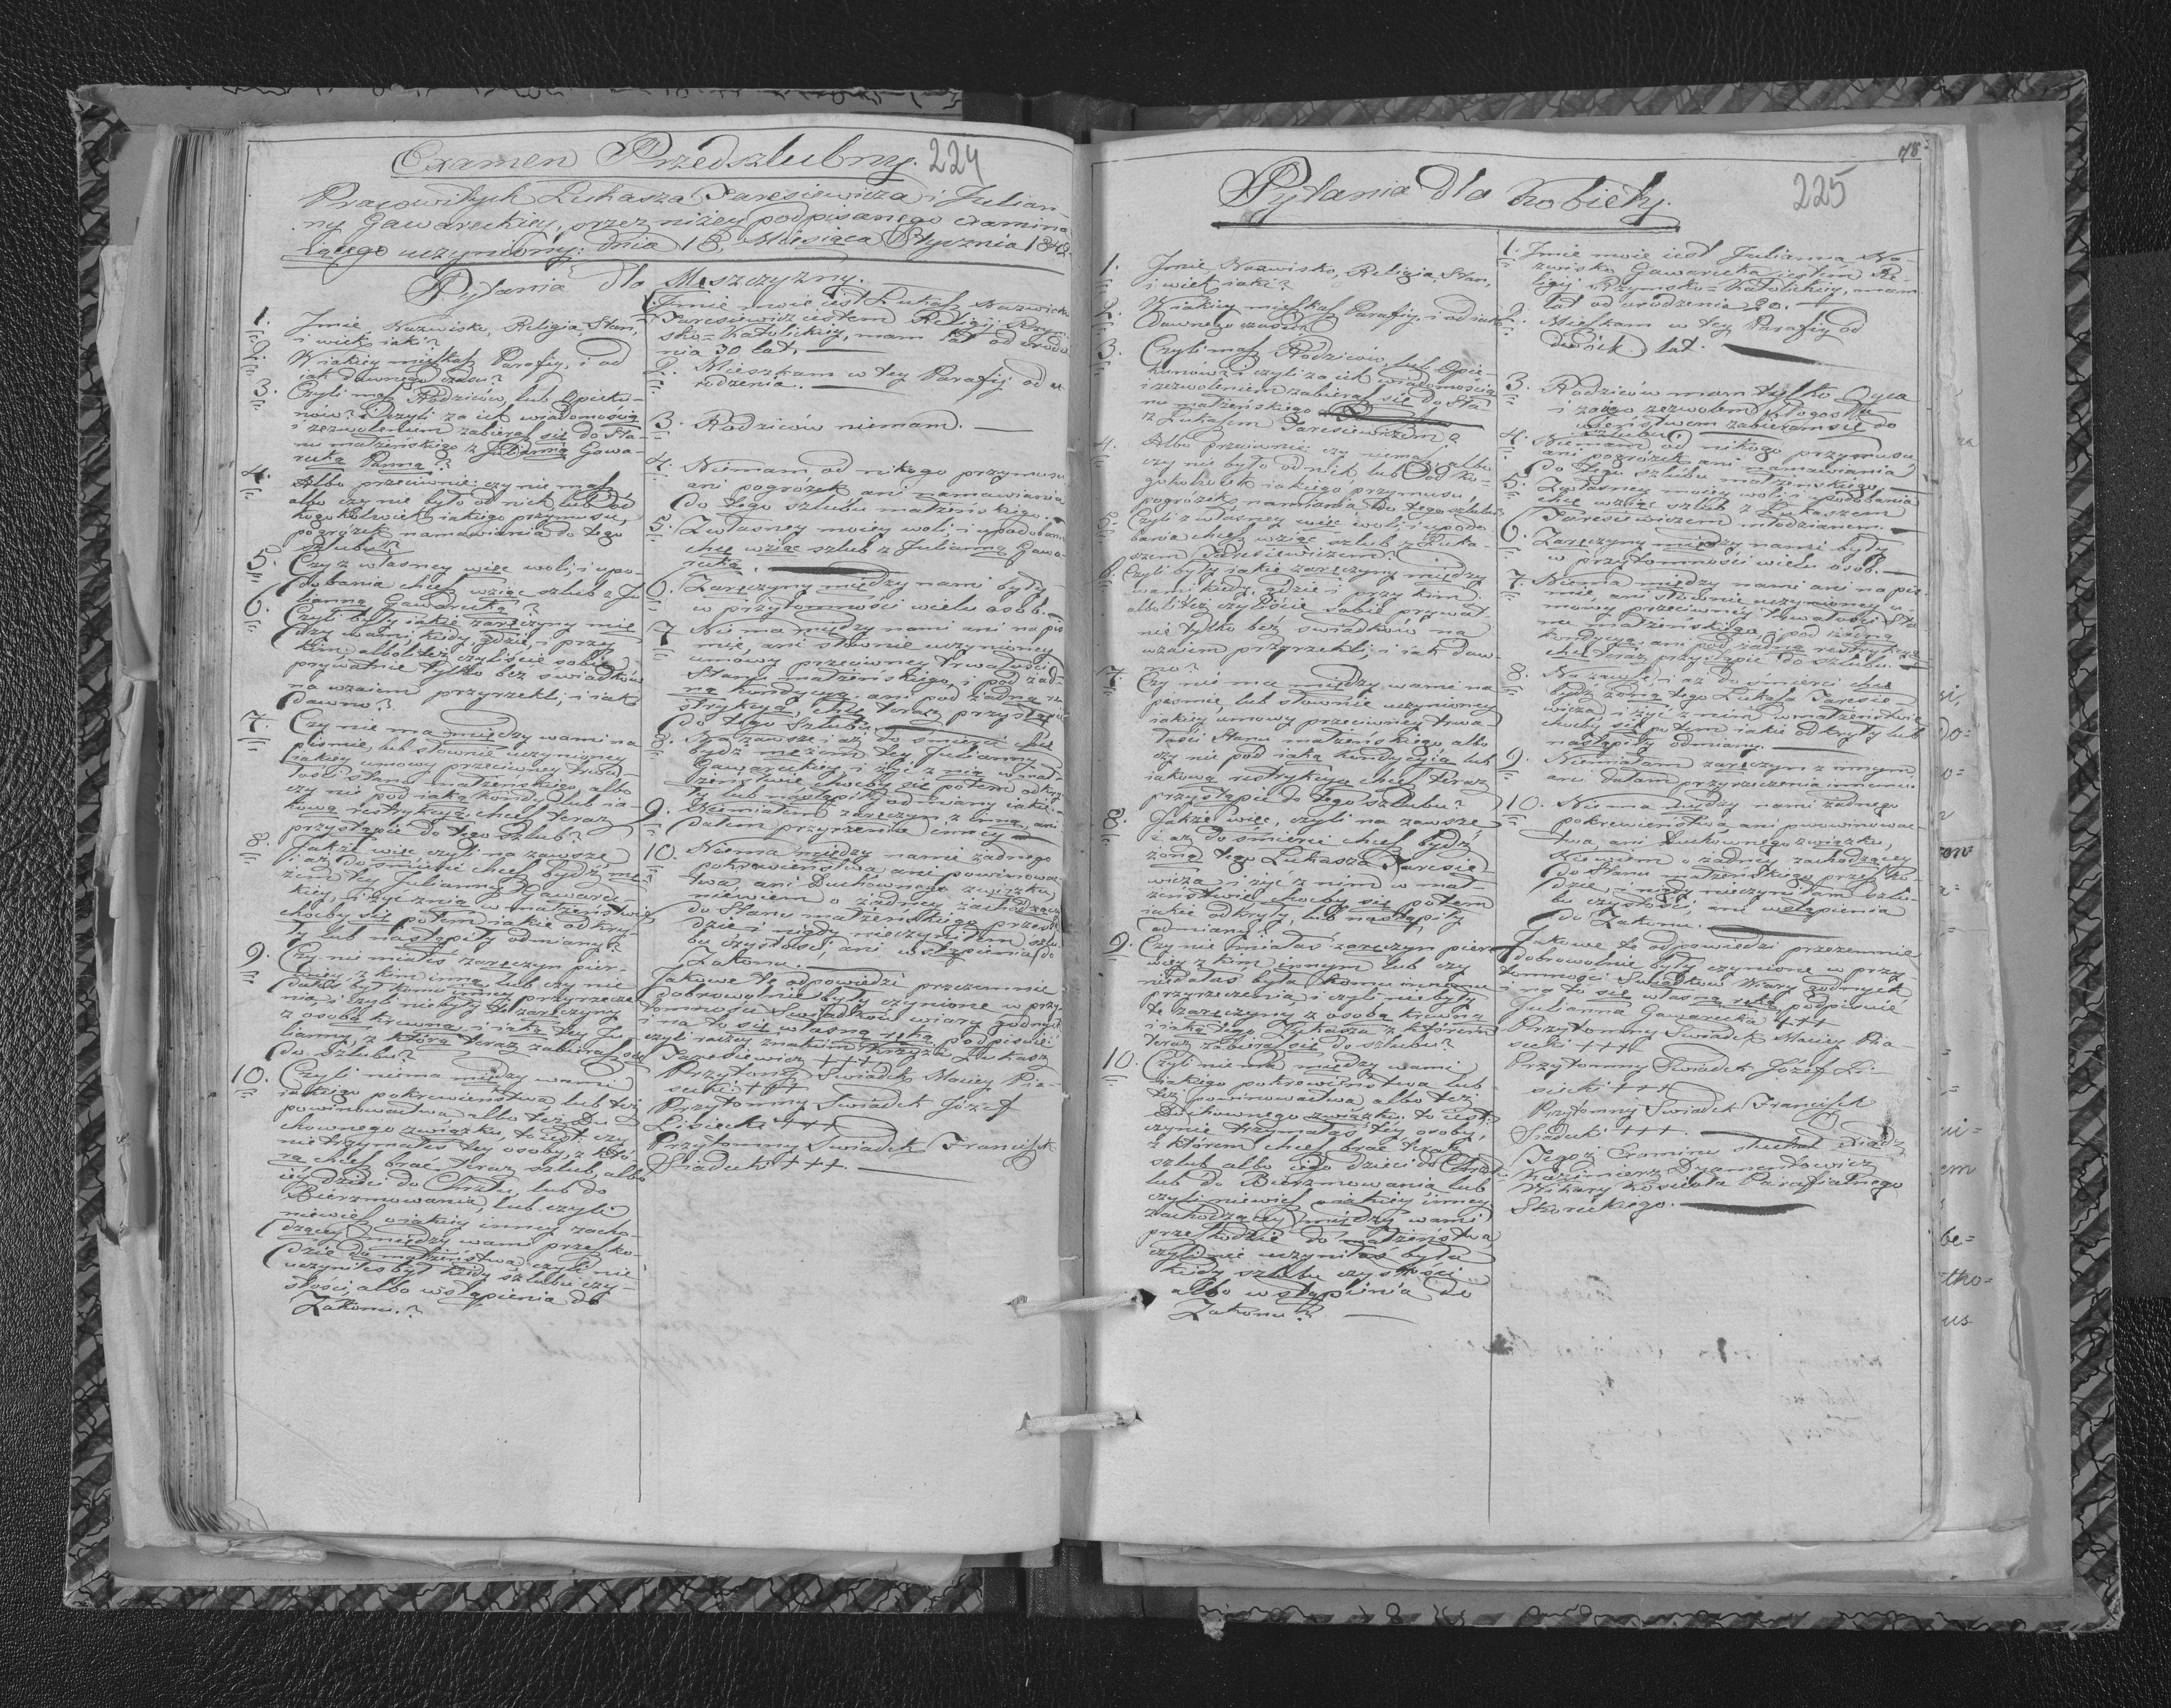 Examen Przedszlubny. 224
Pracowitych Łukasza Taresiewicza i Julian-
ny Gawareckiey, przez niżey podpisanego examinu-
iącego uczyniony: dnia 18, Miesiąca Stycznia 1842
Pytania dla Meszczyzny.
1. Jmie Nazwisko, Religia, Stan,
i wiek iaki?
2. W iakiey mieszkasz Parafiy, i od
iak dawnego czasu?
3. Czyli masz Rodziców, lub Opieku-
nów? i czyli za ich wiadomością
i zezwoleniem zabierasz się do Sta-
nu małżeńskiego z Julianną Gawa-
recką Panną?
4. Albo przeciwnie: czy nie masz
albo czy nie było od nich lub od
kogokolwiek iakiego przymusu,
pogróżek namawiania do tego
szlubu?
5. Czy z własney więc woli, i upo-
dobania chcesz wziąc szlub z Ju-
lianną Gawarecką?
6. Czyli były iakie zaręczyny mię-
dzy wami, kiedy, gdzie, przy
kim albo też czyliście sobie
prywatnie tylko bez swiadków
na wzaiem przyrzekli, i iak
dawno?
7. Czy nie ma między wami na
pismie, lub słownie uczynioney
iakiey umowy przeciwney trwa-
łości stanu małżeńskiego albo
czy nie pod iaką kondyc. lub ia-
kową restrykcyą chcesz teraz
przystąpić do tego szlub?
8. Jakże więc czyli na zawsze,
i aż do śmierci chcesz bydź mę-
żem tey Julianny Gawarec-
kiey, i żyć z nią w małżeństwie
choćby się potem iakie odkry-
ły lub nastąpiły odmiany?
9. Czy nie miałes zaręczyn pier-
wiey z kim inną lub czy nie
dałes był komu inney przyrzecze-
nia, i czyli niebyły te zaręczyny
z osobą krewną i iaką tey Ju-
lianny, z którą teraz zabierasz się
do szlubu?
10. Czyli niema między wami
iakiego pokrewieństwa, lub też
powinowactwa, albo też Du-
chownego związku, to iest: czy
nie trzymałes tey osoby, z któ-
rą chcesz brac teraz szlub, albo
iey dzieci do Chrztu, lub do
Bierzmowania, lub czyli
niewiesz o iakiey inney zacho-
dzącey między wami przeszko-
dzie do małżeństwa, czyli nie
uczyniłes był kiedy szlubu czy-
stości, albo wstąpienia do
Zakonu.?
1. Jmie moie iest Łukasz Nazwisko
Taresiewicz iestem Religij Rzym-
sko-Katolickiey, mam lat od urodze-
nia 30 lat.
2. Mieszkam w tey Parafij od u-
rodzenia.
3. Rodziców niemam.
4. Niemam od nikogo przymusu,
ani pogróżek ani namawiania
do tego szlubu małżeńskiego.
5. Z własney moiey woli, i upodobania
chcę wziąc szlub z Julianną Gawa-
recką.
6. Zaręczyny między nami były
w przytomności wielu osób.
7. Nie ma między nami ani na pis-
mie, ani słownie uczynioney
umowy przeciwney trwałości
Stanu małżeńskiego, i pod żad-
ną kondycyą, ani pod żadną re-
strykcyą, chcę teraz przystąpić
do tego szlubu.
8. Na zawsze i aż do śmierci chcę
bydź mężem tey Julianny
Gawareckiey i żyć z nią w mał-
żeństwie choćby się potem odkry-
ły lub nastąpiły odmiany iakie.
9. Niemiałem zaręczyn z inną, ani
dałem przyrzenia inney
10. Niema między nami żadnego
pokrewieństwa, ani powinowac-
twa, ani Duchownego związku
niewiem o żadney zachodzącey
do Stanu małżeńskiego przeszko-
dzie i nigdy nieczyniłem szlu-
bu czystości, ani wstąpienia do
Zakonu.
Jakowe te odpowiedzi przezemnie
dobrowolnie były czynione w przy-
tomności Swiadków wiary godnych
i na to się własną ręką podpisuie
czyli raczey znakiem krzyża Łukasz
Taresiewicz +++
Przytomny Swiadek Maciey Pia-
secki +++
Przytomny Swiadek Józef
Lisiecki +++
Przytomny Swiadek Franciszek
Siadecki +++.
78.
Pytania dla Kobiety. 225
1. Jmie Nazwisko, Religia, Stan,
i wiek iaki?
2. W iakiey mieszkasz Parafiy, i od iak
dawnego czasu?
3. Czyli masz Rodziców, lub Opie-
kunów? i czyli za ich wiadomością
i zezwoleniem zabierasz się do Sta-
nu małżeńskiego
z Łukaszem Taresiewiczem?
4. Albo przeciwnie: czy niemasz albo
czy nie było od nich, lub od ko-
gokolwiek iakiego przymusu,
pogróżek, namawiania do tego szlubu?
5. Czyli z własney więc woli i upodo-
bania chcesz wziąc szlub z Łuka-
szem Taresiewiczem?
6. Czyli były iakie zaręczyny między
wami kiedy, gdzie i przy kim,
albo też czyliście sobie prywat-
nie tylko bez swiadków na
wzaiem przyrzekli, i iak daw-
no?
7. Czy nie ma między wami na
pismie, lub słownie uczynioney
iakiey umowy przeciwney trwa-
łości Stanu małżeńskiego, albo
czy nie pod iaką kondycyią lub
iakową restrykcyą chcesz teraz
przystąpić do tego szlubu?
8. Jakże więc, czyli na zawsze
i aż do śmierci chcesz bydź
żoną tego Łukasza Taresie-
wicza, i żyć z nim w mał-
żeństwie, choćby się potem
iakie odkryły, lub nastąpiły
odmiany?
9. Czy nie miałaś zaręczyn pier-
wiey z kim innym lub czy
niedałaś była komu innemu
przyrzeczenia, i czyli niebyły
te zaręczyny z osobą krewną
i iaką tego Łukasza z którem
teraz zabierasz się do szlubu?
10. Czyli nie ma między wami
iakiego pokrewieństwa lub
też powinowactwa albo też
Duchownego związku, to iest:
czy nie trzymałaś tey osoby,
z którem chcesz brać teraz
szlub albo iego dzieci do Chrztu
lub do Bierzmowania lub
czyli niewiesz o iakiey inney
zachodzącey między wami
przeszkodzie do małżeństwa,
czyli nie uczyniłaś była
kiedy szlubu czystości
albo wstąpienia do
Zakonu?
1. Jmie moie iest Julianna Na-
zwisko Gawarecka iestem Re-
ligij Rzymsko-Katolickiey, mam
lat od urodzenia 20.
2. Mieszkam w tey Parafiy od
dwóch lat.
3. Rodziców mam tylko Oyca
i za iego zezwolem błogosła-
wieństwem zabieram się do
szlubu.
4. Niemam od nikogo przymusu,
ani pogróżek ani namawiania
do tego szlubu małżeńskiego.
5. Z własney moiey woli i upodobania
chcę wziąc szlub z Łukaszem
Taresiewiczem młodzianem.
6. Zaręczyny między nami były
w przytomności wielu osob.
7. Niema między nami ani na pis-
mie, ani słownie uczynioney u-
mowy przeciwney trwałości Sta-
nu małżeńskiego, i pod żadną
kondycyą, ani pod żadną restrykcyą
chcę teraz przystąpić do szlubu.
8. Na zawsze, i aż do śmierci chcę
bydź żoną tego Łukasza Taresie-
wicza, i żyć z nim w małżeństwie
choćby się potem iakie odkryły lub
nastąpiły odmiany.
9. Niemiałam zaręczyn z innym,
ani dałam przyrzeczenia innemu.
10. Niema między nami żadnego
pokrewieństwa, ani powinowac-
twa, ani Duchownego związku,
Niewiem o żadney zachodzącey
do Stanu małżeńskiego przeszko-
dzie, i nigdy nieczyniłam szlu-
bu czystości, ani wstąpienia
do Zakonu.
Jakowe te odpowiedzi przezemnie
dobrowolnie były czynione w przy-
tomności Swiadków Wiary godnych
i na to się własną ręką podpisuie
Julianna Gawarecka +++
Przytomny Swiadek Maciey Pia-
secki +++
Przytomny Swiadek Józef Li-
siecki +++
Przytomny Swiadek Franciszek
Siadecki +++.
Tegoż Examinu słuchał Xiądz
Kazimierz Dyamentowicz
Wikary Kościoła Parafialnego